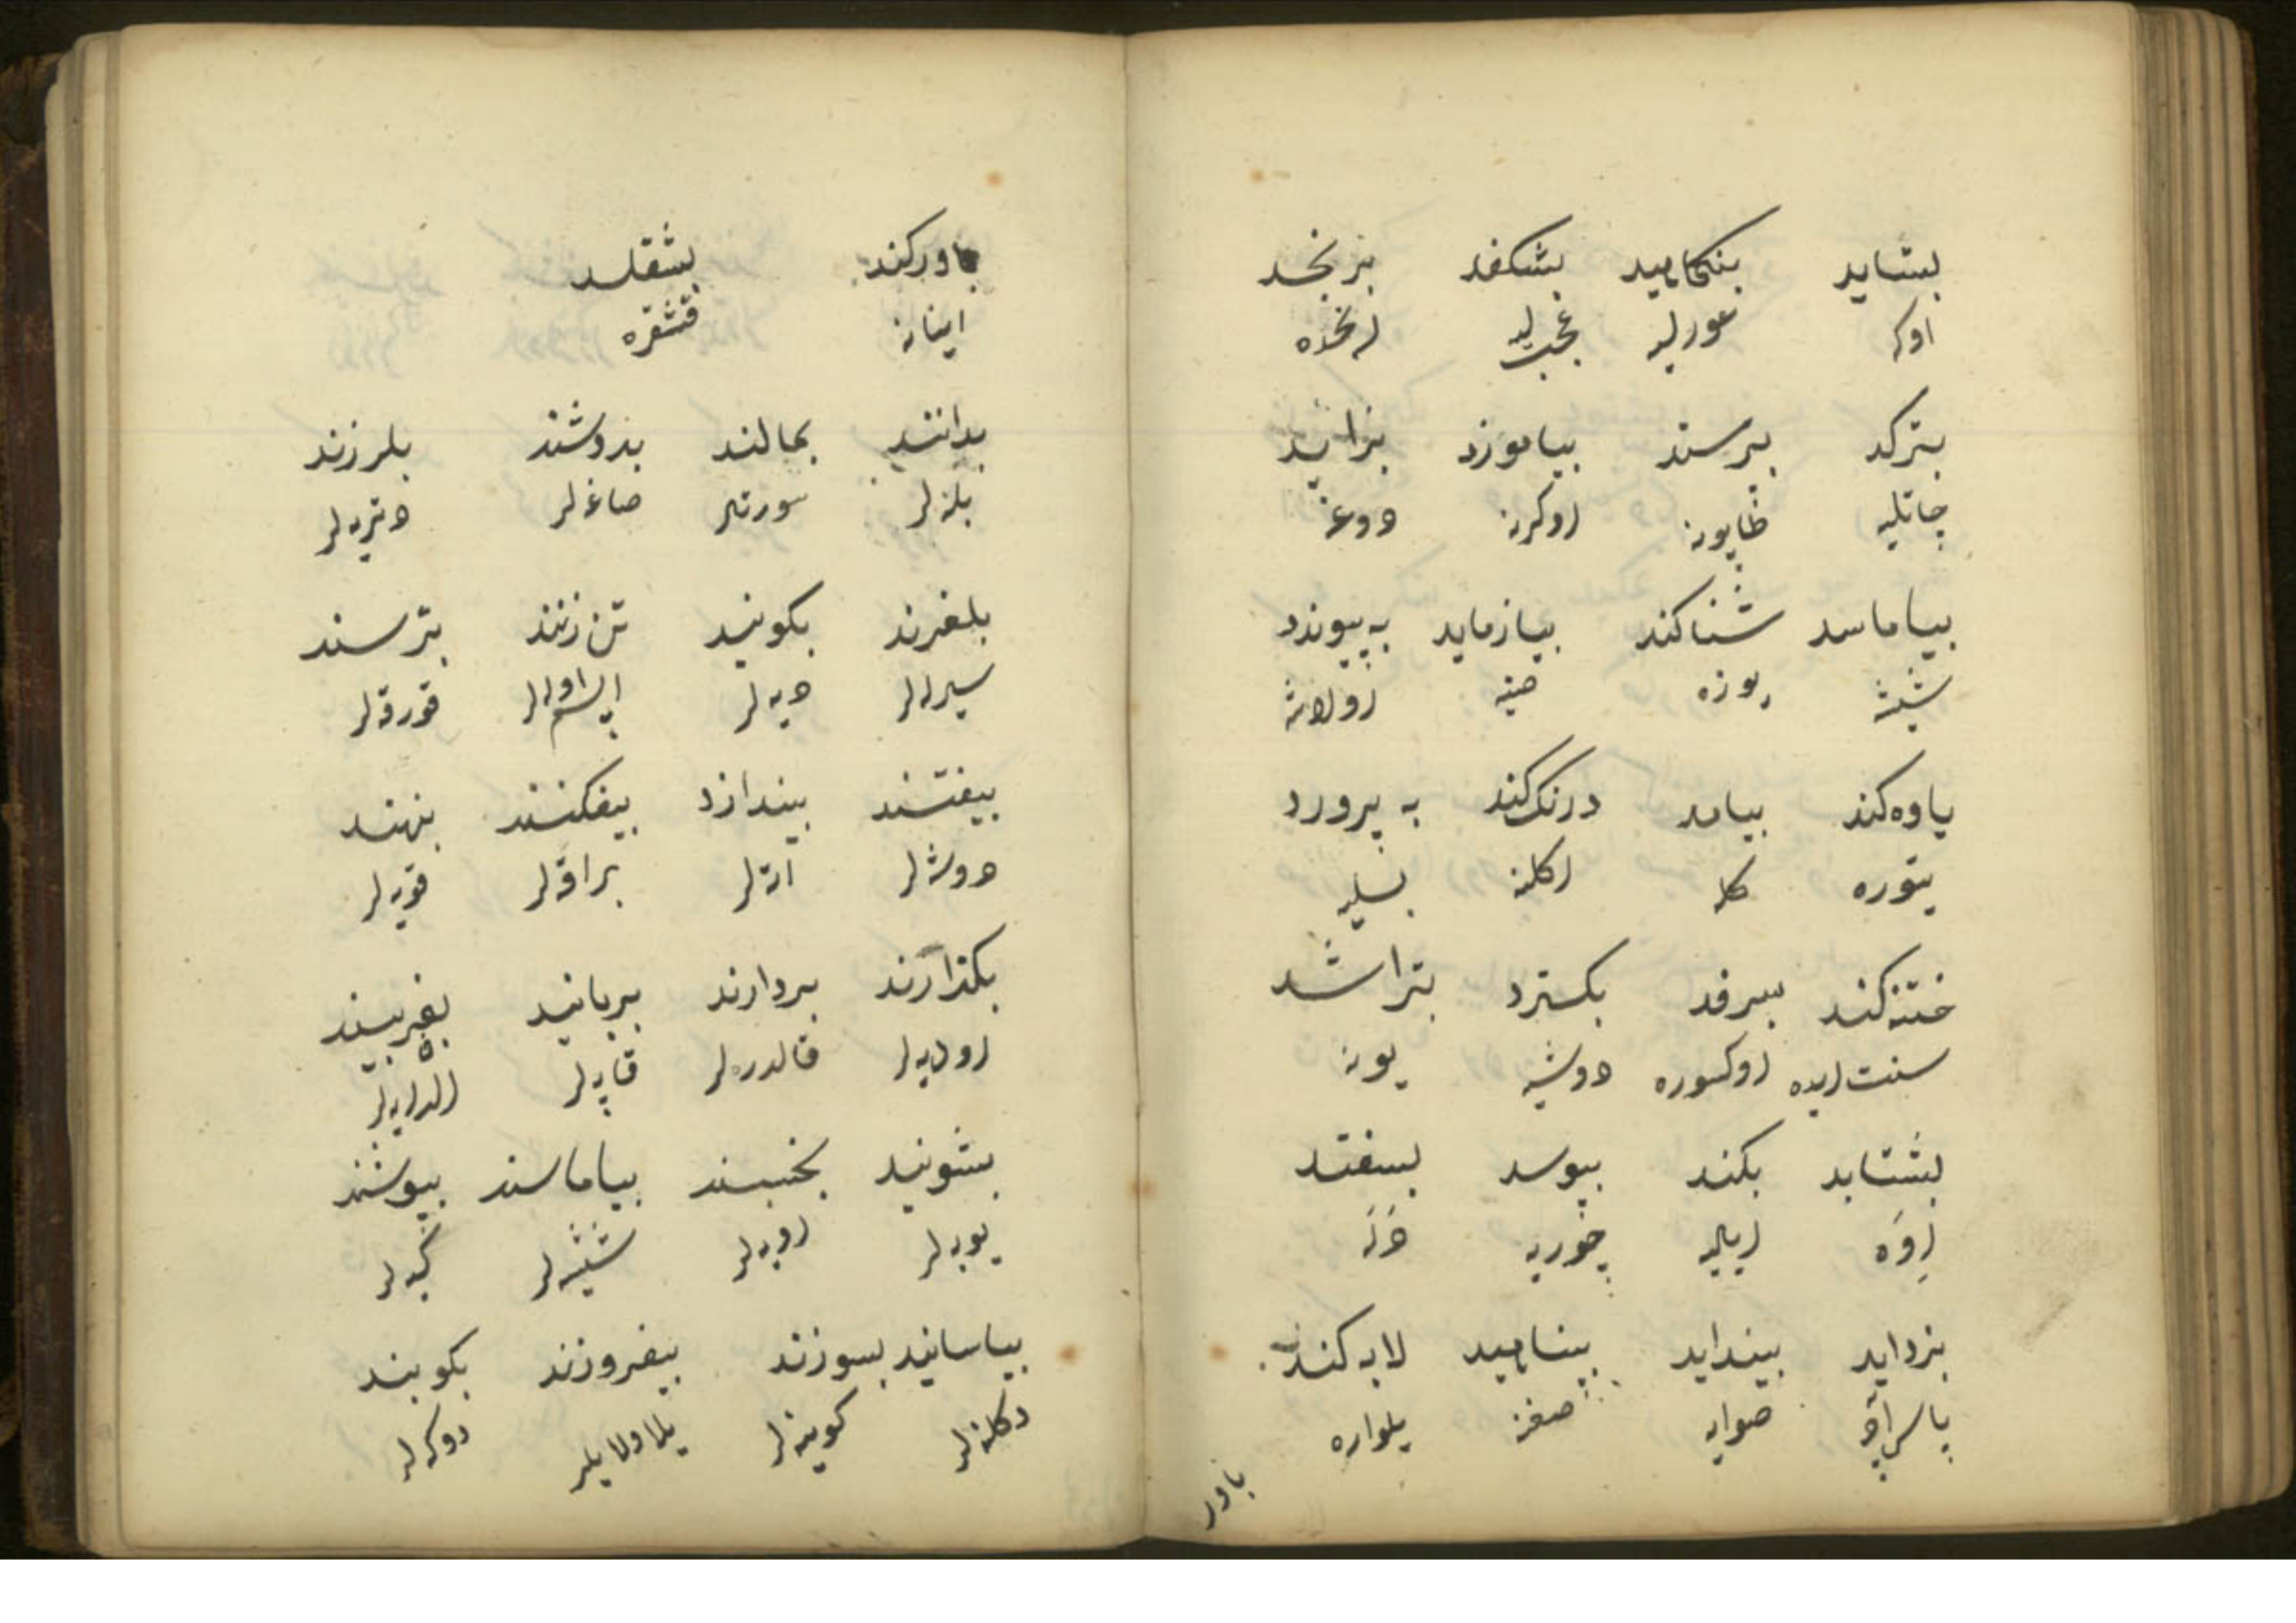 بستاید بنکاهید بشکفد برنجد
اوکه عورلیه عجبلیه رنجده
بترکد بپرستد بیاموزد بزاید
چاتلیه طاپونه اوکرنه دوغه
بیاماسد شناکند بیازماید به پیوندد
شیشه یوزه صنیه اولاشه
یاوه کند بیاید درنک کند به پرورد
یتوره کله اکلنه بسلیه
ختنه کند بسرفد بکسترد بتراشد
سنت ایده اوکسوره دوشیه یونه
بشتابد بکند بپوسد بسفتد
اوه ایلیه چوریه دله
بزداید بینداید بپناهید لابه کند
پاس آچه صوایه صغنه یلواره
باور
باورکند بشقلد
اینانه قشقره
بدانند بمالند بدوشند بلرزند
بلەلر سورتەلر صاغەلر دترەیەلر
بلغزند بکویند تن زنند بترسند
سورلەلر دیەلر اپسم اولەلر قورقەلر
بیفتند بیندازد بیفکنند بنهند
دوشەلر اتەلر براقەلر قویەلر
بکذارند بردارند بربایند بفریبند
اودیەلر قالدرەلر قاپەلر الدایەلر
بشویند بخسبند بیاماسند بپوشند
یویەلر اویەلر شیشەلر کیەلر
بیاسایند بسوزند بیفروزند بکوبند
دکلنەلر کوینەلر یلاولایلر دوکەلر